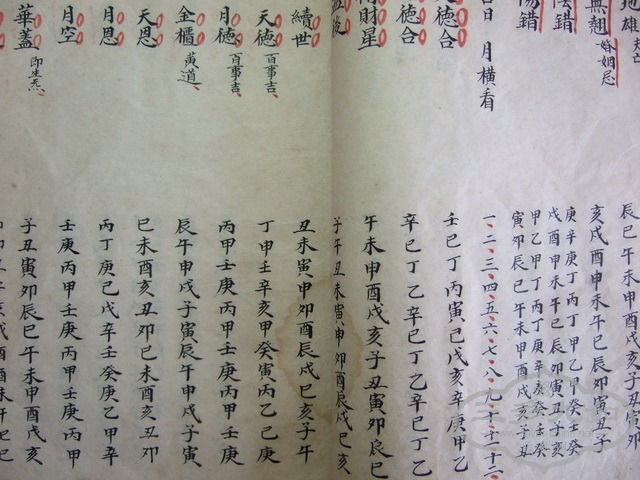 地雄
辰巳午未申酉戌亥子丑寅卯
無翹 婚姻忌
亥戌酉申未午巳辰卯寅丑子
陰錯
庚辛庚丁丙丁甲乙甲癸壬癸
戌酉申未午巳辰卯寅丑子亥
陽錯
甲乙甲丁丙丁庚辛庚癸壬癸
寅卯辰巳午未申酉戌亥子丑
吉日 月橫看
一、二、三、四、五、六、七、八、九、十、十一、十二、
德合
壬巳丁丙寅己戊亥辛庚甲乙
德合
辛己丁乙辛己丁乙辛己丁乙
財星
午未申酉戌亥子丑寅卯辰巳
益後
子午丑未寅申卯酉辰戌巳亥
續世
丑未寅申卯酉辰戌巳亥子午
天德 百事吉、
丁申壬辛亥甲癸寅丙乙巳庚
月德 百事吉、
丙甲壬庚丙甲壬庚丙甲壬庚
金櫃 黄道、
辰午申戌子寅辰午申戌子寅
天恩
巳未酉亥丑卯巳未酉亥丑卯
月恩
丙丁庚己戊辛壬癸庚乙甲辛
月空
壬庚丙甲壬庚丙甲壬庚丙甲
華蓋 即生炁、
子丑寅卯辰巳午未申酉戌亥